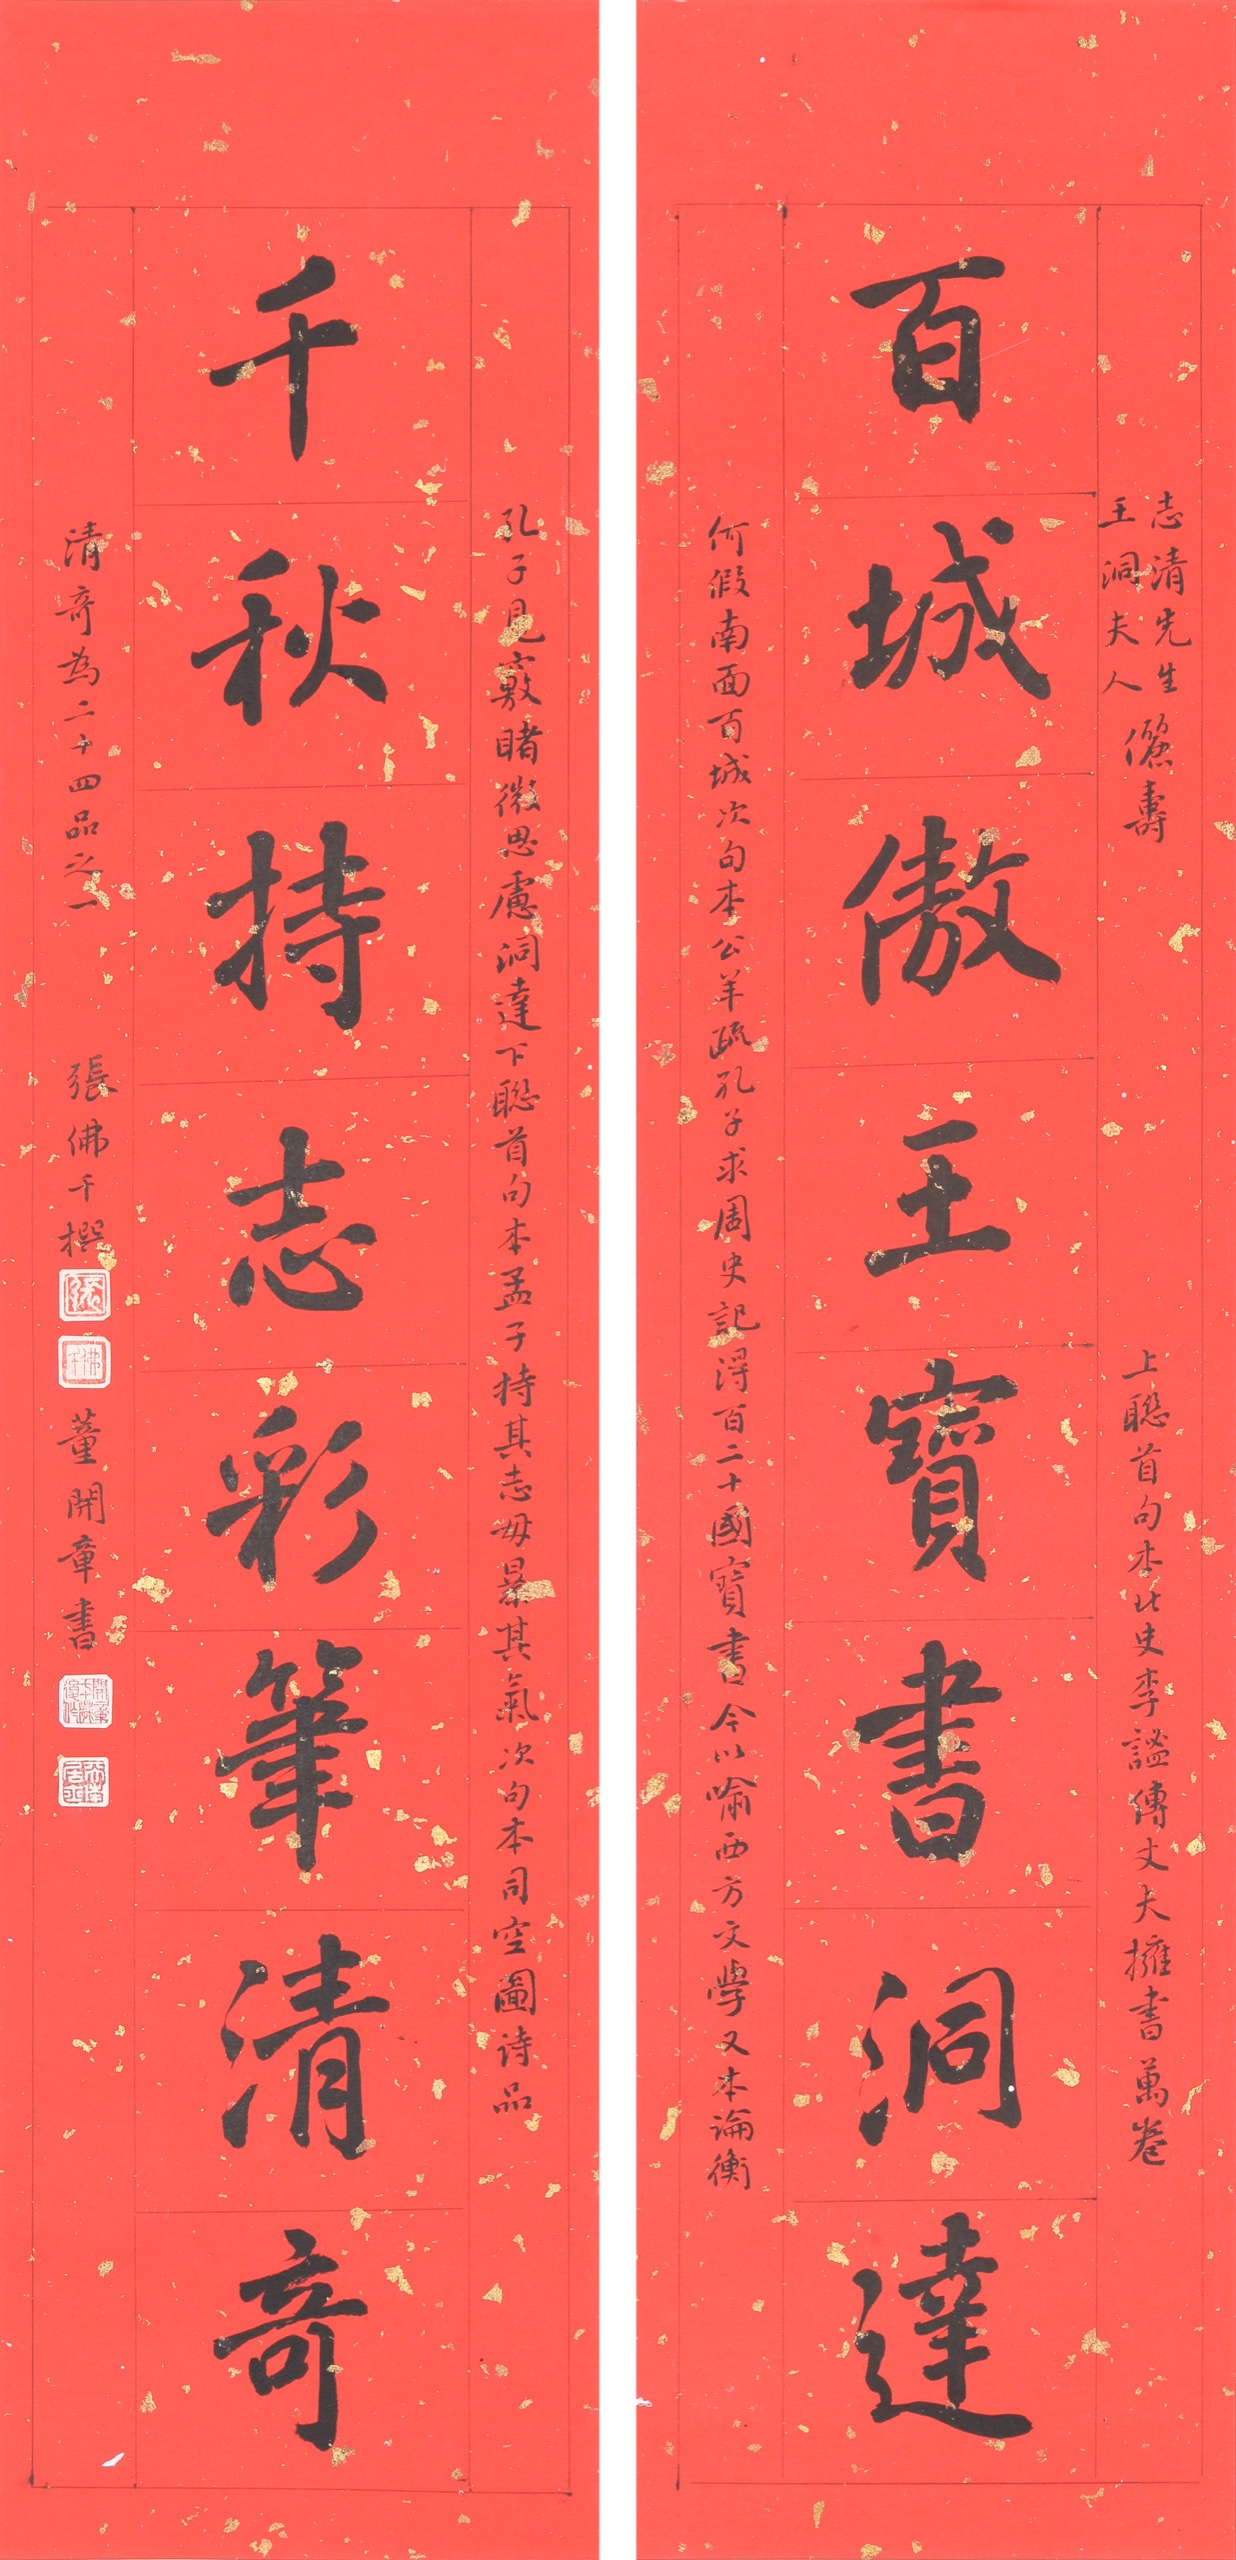 志清先生
王洞夫人
儷壽
上聯首句本北史李謐傳丈夫擁書萬卷
百城傲王寶書洞達
何假南面百城次句本公羊疏孔子求周史記得百二十國寶書今以喻西方文學又本論衡
孔子見竅睹微思慮洞達下聯首句本孟子持其志毋暴其氣次句本司空圖詩品
千秋持志彩筆清奇
清奇為二十四品之一
張佛千撰
董開章書